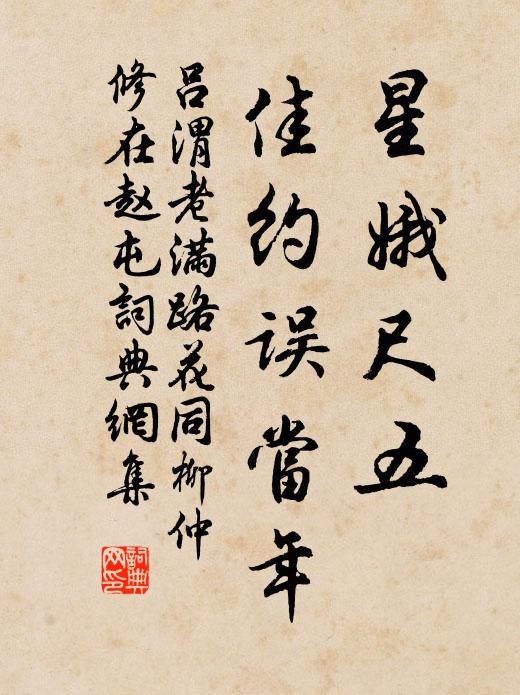 星娥尺五
佳约误當年
吕渭老满路花同柳仲
修在赵屯詞典網集
詞典
网印